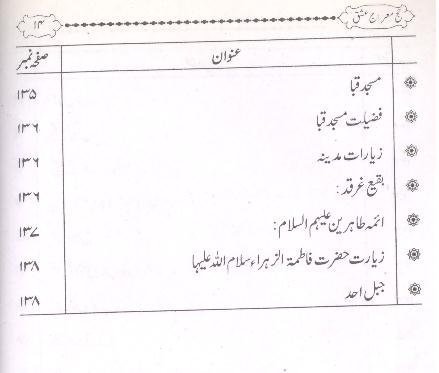 حج معراج عشق ۱۴
عنوان صفحہ نمبر
مسجد قبا ۱۳۵
فضیلت مسجد قبا ۱۳۶
زیارات مدینہ ۱۳۶
بقیع غرقد: ۱۳۶
ائمہ طاہرین علیہم السلام: ۱۳۷
زیارت حضرت فاطمۃ الزہراء سلام اللہ علیہا ۱۳۸
جبل احد ۱۳۸